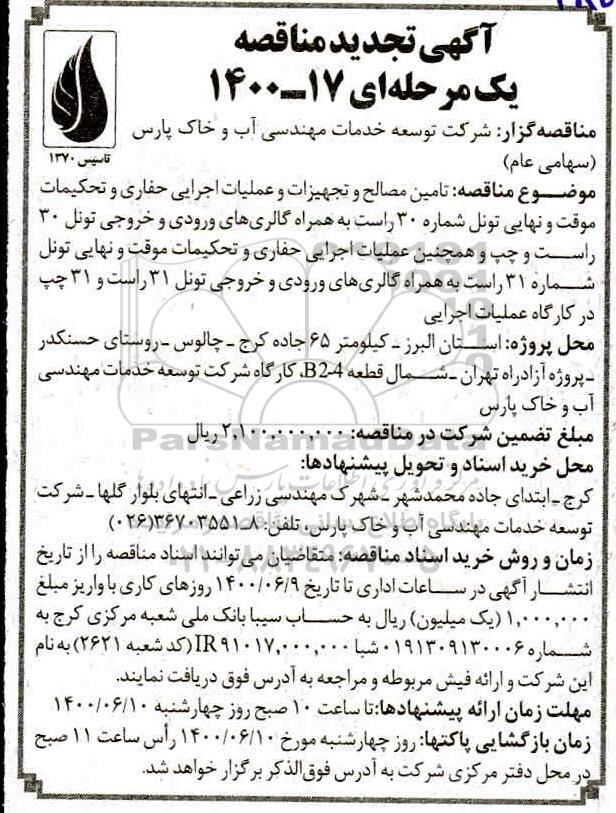 آگهی تجدید مناقصه
یک مرحله‌ای ۱۷ـ۱۴۰۰
تاسیس ۱۳۷۰
مناقصه‌گزار: شرکت توسعه خدمات مهندسی آب و خاک پارس
(سهامی عام)
موضوع مناقصه: تامین مصالح و تجهیزات و عملیات اجرایی حفاری و تحکیمات
موقت و نهایی تونل شماره ۳۰ راست به همراه گالری‌های ورودی و خروجی تونل ۳۰
راست و چپ و همچنین عملیات اجرایی حفاری و تحکیمات موقت و نهایی تونل
شماره ۳۱ راست به همراه گالری‌های ورودی و خروجی تونل ۳۱ راست و ۳۱ چپ
در کارگاه عملیات اجرایی
محل پروژه: استان البرز ـ کیلومتر ۶۵ جاده کرج ـ چالوس ـ روستای حسنکدر
ـ پروژه آزادراه تهران ـ شمال قطعه B2-4، کارگاه شرکت توسعه خدمات مهندسی
آب و خاک پارس
مبلغ تضمین شرکت در مناقصه: ۲,۱۰۰,۰۰۰,۰۰۰ ریال
محل خرید اسناد و تحویل پیشنهادها:
کرج ـ ابتدای جاده محمدشهر ـ شهرک مهندسی زراعی ـ انتهای بلوار گلها ـ شرکت
توسعه خدمات مهندسی آب و خاک پارس، تلفن: ۸ـ۳۶۷۰۳۵۵۱(۰۲۶)
زمان و روش خرید اسناد مناقصه: متقاضیان می‌توانند اسناد مناقصه را از تاریخ
انتشار آگهی در ساعات اداری تا تاریخ ۱۴۰۰/۰۶/۹ روزهای کاری با واریز مبلغ
۱,۰۰۰,۰۰۰ (یک میلیون) ریال به حساب سیبا بانک ملی شعبه مرکزی کرج به
شماره ۰۱۹۱۳۰۹۱۳۰۰۰۶ شبا IR ۹۱۰۱۷,۰۰۰,۰۰۰ (کد شعبه ۲۶۲۱) به نام
این شرکت و ارائه فیش مربوطه و مراجعه به آدرس فوق دریافت نمایند.
مهلت زمان ارائه پیشنهادها: تا ساعت ۱۰ صبح روز چهارشنبه ۱۴۰۰/۰۶/۱۰
زمان بازگشایی پاکتها: روز چهارشنبه مورخ ۱۴۰۰/۰۶/۱۰ رأس ساعت ۱۱ صبح
در محل دفتر مرکزی شرکت به آدرس فوق‌الذکر برگزار خواهد شد.
ParsNamadData